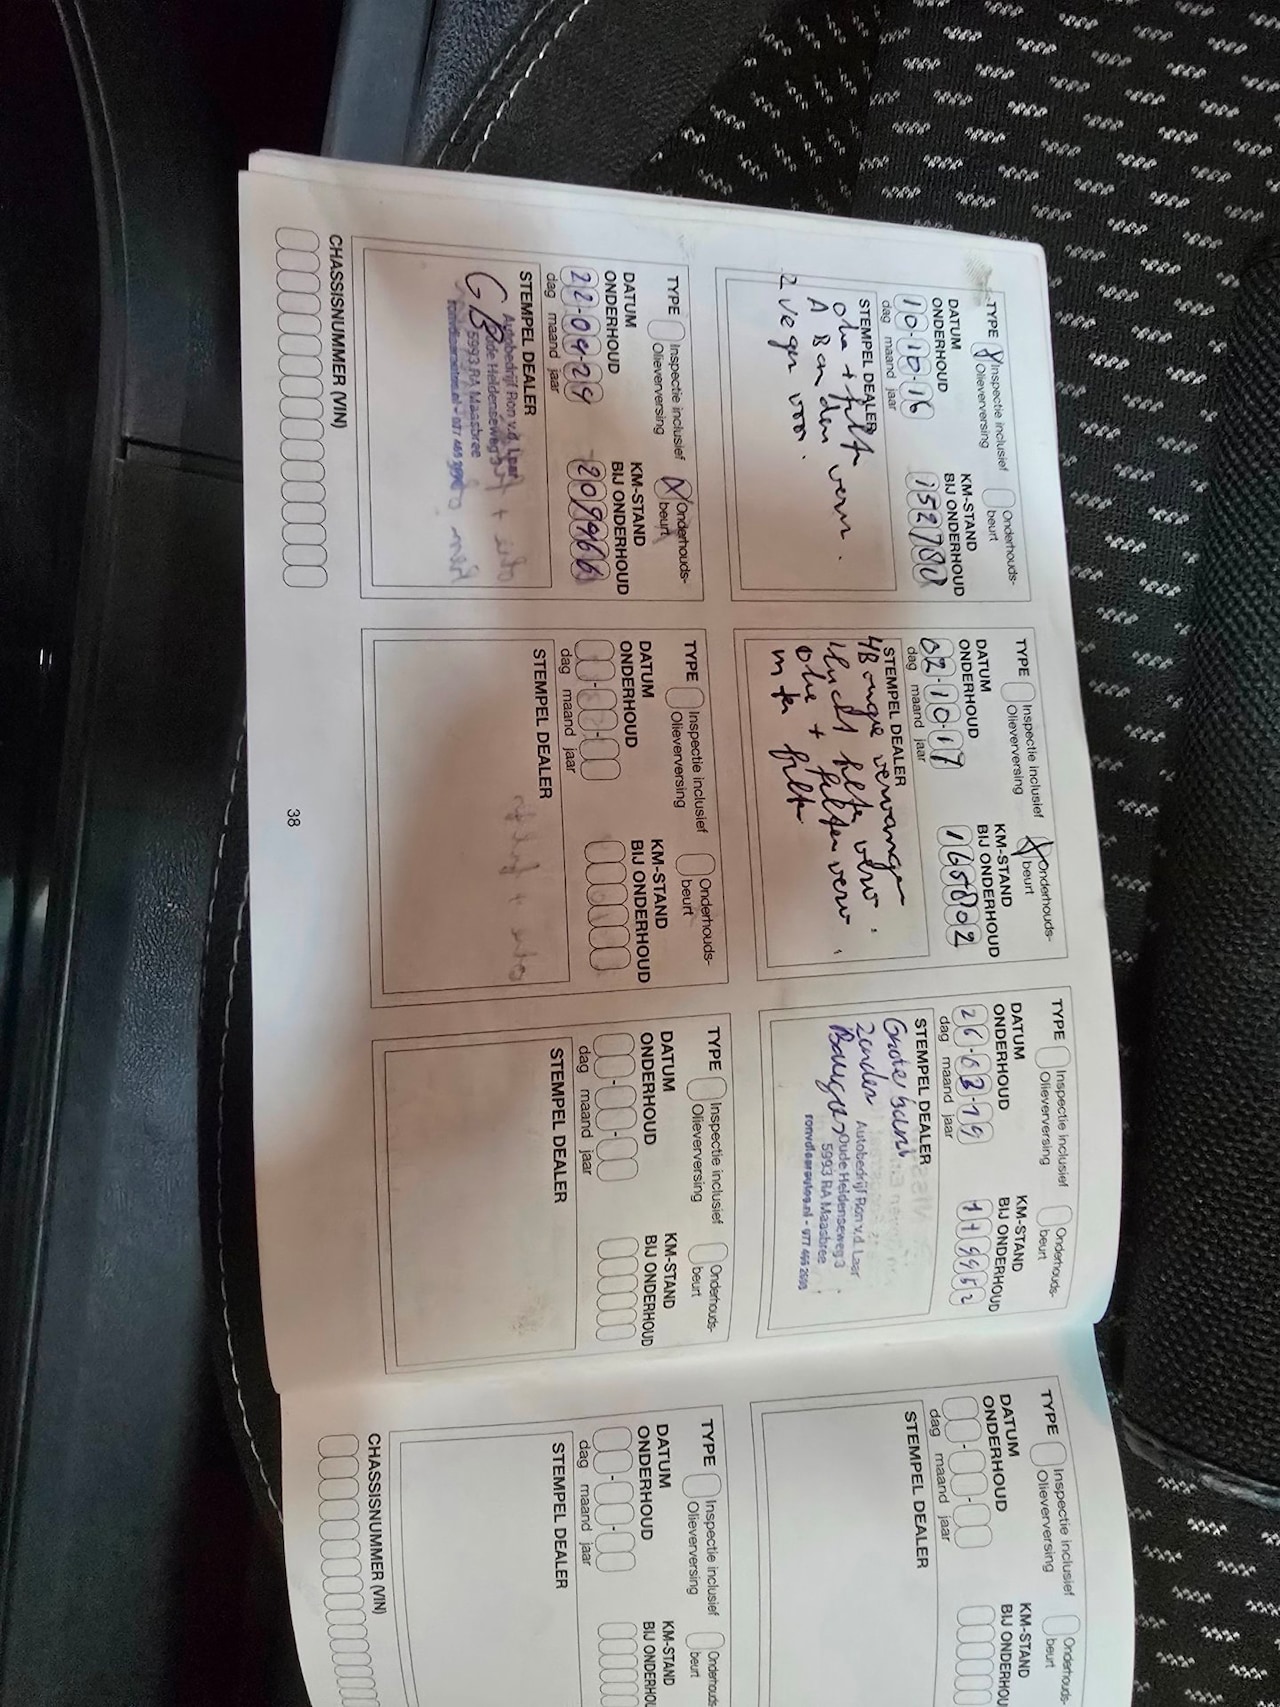 TYPE Inspectie inclusief Olieverversing Onderhouds-beurt
DATUM ONDERHOUD
KM-STAND BIJ ONDERHOUD
10-10-16
152780
dag maand jaar
STEMPEL DEALER
olie + filter
A Banden verv.
2 vegers voor.
TYPE Inspectie inclusief Olieverversing Onderhouds-beurt
DATUM ONDERHOUD
KM-STAND BIJ ONDERHOUD
02-10-17
165802
dag maand jaar
STEMPEL DEALER
4 Bougie vervangen
olie + filter verv.
filter
TYPE Inspectie inclusief Olieverversing Onderhouds-beurt
DATUM ONDERHOUD
KM-STAND BIJ ONDERHOUD
26-03-19
dag maand jaar
STEMPEL DEALER
Grote beurt
Zonder
Bougies
Autobedrijf Ron v.d. Laar
Oude Heldenseweg 3
5993 RA Maasbree
TYPE Inspectie inclusief Olieverversing Onderhouds-beurt
DATUM ONDERHOUD
KM-STAND BIJ ONDERHOUD
dag maand jaar
STEMPEL DEALER
TYPE Inspectie inclusief Olieverversing Onderhouds-beurt
DATUM ONDERHOUD
KM-STAND BIJ ONDERHOUD
209966
dag maand jaar
STEMPEL DEALER
GB
Autobedrijf Ron v.d. Laar
Oude Heldenseweg 3
5993 RA Maasbree
TYPE Inspectie inclusief Olieverversing Onderhouds-beurt
DATUM ONDERHOUD
KM-STAND BIJ ONDERHOUD
dag maand jaar
STEMPEL DEALER
TYPE Inspectie inclusief Olieverversing Onderhouds-beurt
DATUM ONDERHOUD
KM-STAND BIJ ONDERHOUD
dag maand jaar
STEMPEL DEALER
TYPE Inspectie inclusief Olieverversing Onderhouds-
DATUM ONDERHOUD
KM-STAND BIJ ONDERHOU
dag maand jaar
STEMPEL DEALER
CHASSISNUMMER (VIN)
38
CHASSISNUMMER (VIN)